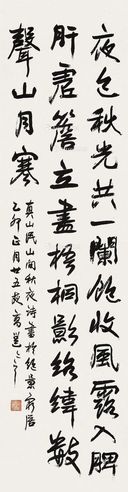 夜色秋光共一闌飽收風露入脾
肝虛簷立盡梧桐影絡緯數
聲山月寒
真山民山間秋夜詩書於絶景居
乙卯正月廿五夜